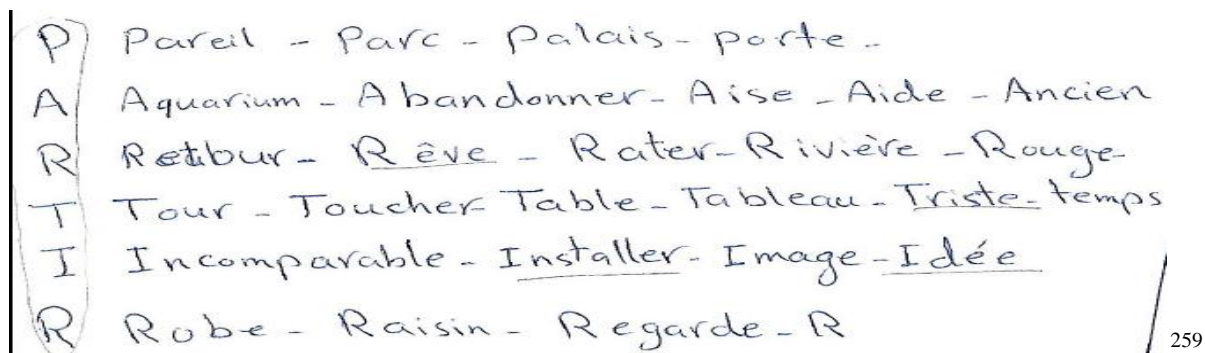 P Pareil - Parc - Palais - porte -
A Aquarium - Abandonner - Aise - Aide - Ancien
R Retour - Rêve - Rater - Rivière - Rouge -
T Tour - Toucher Table - Tableau - Triste - temps
I Incomparable - Installer - Image - Idée
R Robe - Raisin - Regarde - R
259